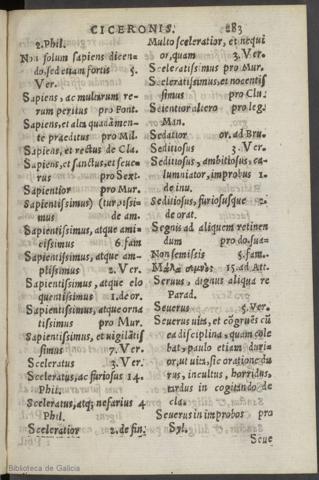 CICERONIS. 283
2. Phil.
Non solum sapiens dicen-
do, sed etiam fortis 5.
Ver.
Sapiens, ac multarum re-
rum peritus pro Font.
Sapiens, et alta quadã men-
te præditus pro Mil.
Sapiens, et rectus de Cla.
Sapiens, et sanctus, et seue-
rus pro Sext.
Sapientior pro Mur.
Sapientissimus) (turpissi-
mus de am.
Sapientissimus, atque ami-
cissimus 6. fam
Sapientissimus, atque am-
plissimus 2. Ver.
Sapientissimus, atque elo
quentissimus 1. de or.
Sapientissimus, atque orna
tissimus pro Mur.
Sapientissimus, et uigilãtis
simus 7. Ver.
Sceleratus 3. Ver.
Sceleratus, ac furiosus 14.
Phil.
Sceleratus, atq; nefarius 4
Phil.
Sceleratior 2. de fin.
Multo sceleratior, et nequi
or, quam 3. Ver.
Sceleratissimus pro Mur.
Sceleratissimus, et nocentis
simus pro Clu.
Scientior altero pro leg.
Man.
Sedatior or. ad Bru.
Seditiosus 3. Ver.
Seditiosus, ambitiosus, ca-
lumniator, improbus 1.
de inu.
Seditiosus, furiosusque 2.
de orat.
Segnis ad aliquem retinen
dum pro do. sua.
Non semissis 5. fam.
Μάλα 15. ad Att.
Seruus, dignus aliqua re
Parad.
Seuerus 5. Ver.
Seuerus uita, et cõgruẽs cũ
ea disciplina, quam cole
bat, paulo etiam duri-
or, ut uita, sic oratione du
rus, incultus, horridus,
tardus in cogitando de
cla.
Seuerus in improbos pro
Syl.
Seue
Biblioteca de Galicia